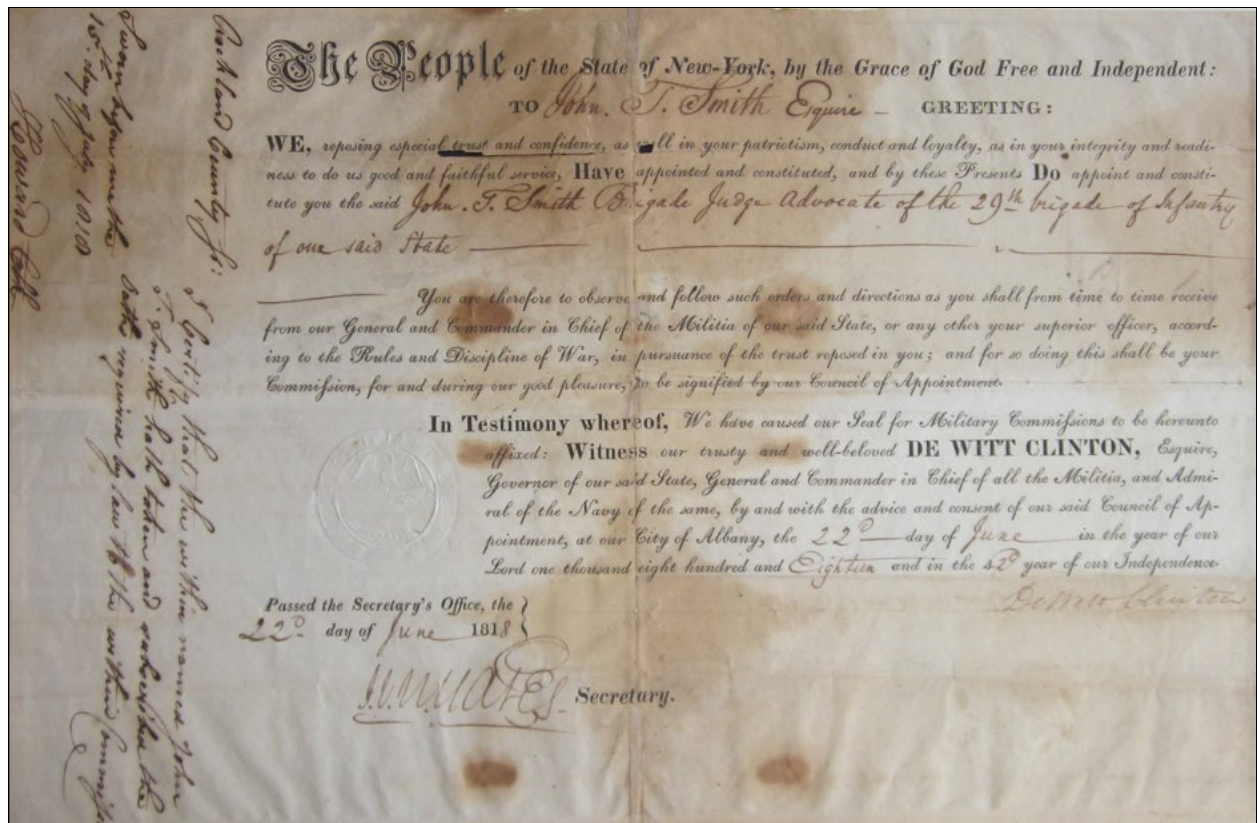 The People of the State of New-York, by the Grace of God Free and Independent:
TO John. T. Smith Esquire — GREETING:
WE, reposing especial trust and confidence, as well in your patriotism, conduct and loyalty, as in your integrity and readi-
ness to do us good and faithful service, Have appointed and constituted, and by these Presents Do appoint and consti-
tute you the said John. T. Smith Brigade Judge Advocate of the 29th brigade of Infantry
of our said State
You are therefore to observe and follow such orders and directions as you shall from time to time receive
from our General and Commander in Chief of the Militia of our said State, or any other your superior officer, accord-
ing to the Rules and Discipline of War, in pursuance of the trust reposed in you; and for so doing this shall be your
Commission, for and during our good pleasure, to be signified by our Council of Appointment.
In Testimony whereof, We have caused our Seal for Military Commissions to be hereunto
affixed: Witness our trusty and well-beloved DE WITT CLINTON, Esquire,
Governor of our said State, General and Commander in Chief of all the Militia, and Admi-
ral of the Navy of the same, by and with the advice and consent of our said Council of Ap-
pointment, at our City of Albany, the 22d day of June in the year of our
Lord one thousand eight hundred and Eighteen and in the 42d year of our Independence.
DeWitt Clinton
Passed the Secretary's Office, the
22d day of June 1818
Secretary.
Rockland County Ss:
I Certify that the within named John
T. Smith hath taken and subscribed the
Oath required by law to the within Commission
Sworn before me this
15th day of July 1818
Edward